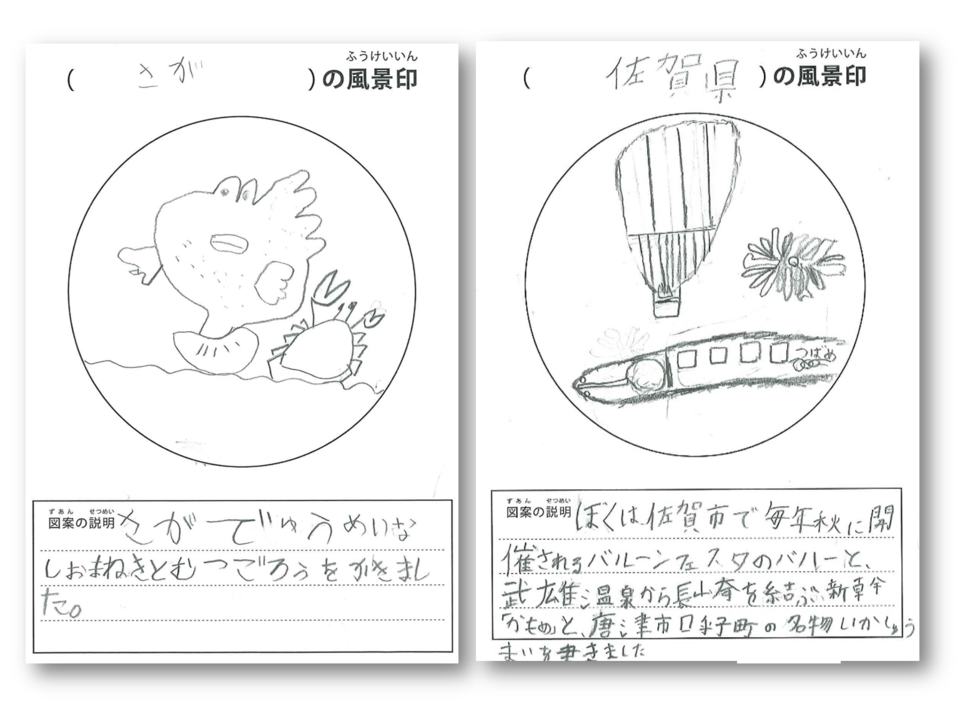 ふうけいいん
( さが )の風景印
ずあん せつめい
図案の説明 さが でゆうめいな
しおまねきとむつごろうをかきまし
た。
ふうけいいん
( 佐賀県 )の風景印
つばめ
ずあん せつめい
図案の説明 ぼくは佐賀市で毎年秋に開
催されるバルーンフェスタのバルーと、
武雄温泉から長崎を結ぶ新幹
「かもめ」と、唐津市呼子町の名物いかしゅう
まいを書きました